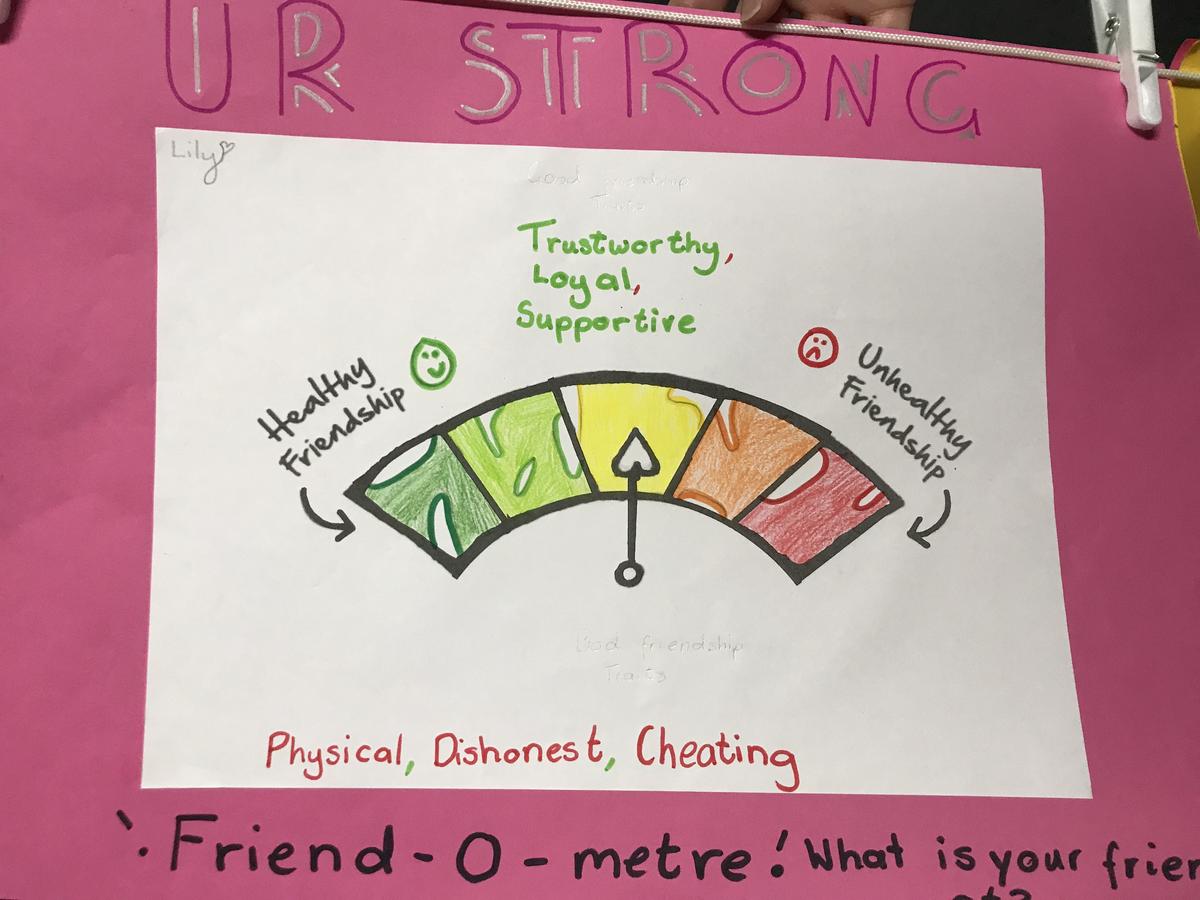 UR STRONG
Lily
Good friendship
Traits
Trustworthy,
Loyal,
Supportive
Healthy
Friendship
Unhealthy
Friendship
friendship
Traits
Physical, Dishonest, Cheating
Friend-O-metre! What is your frien
at?